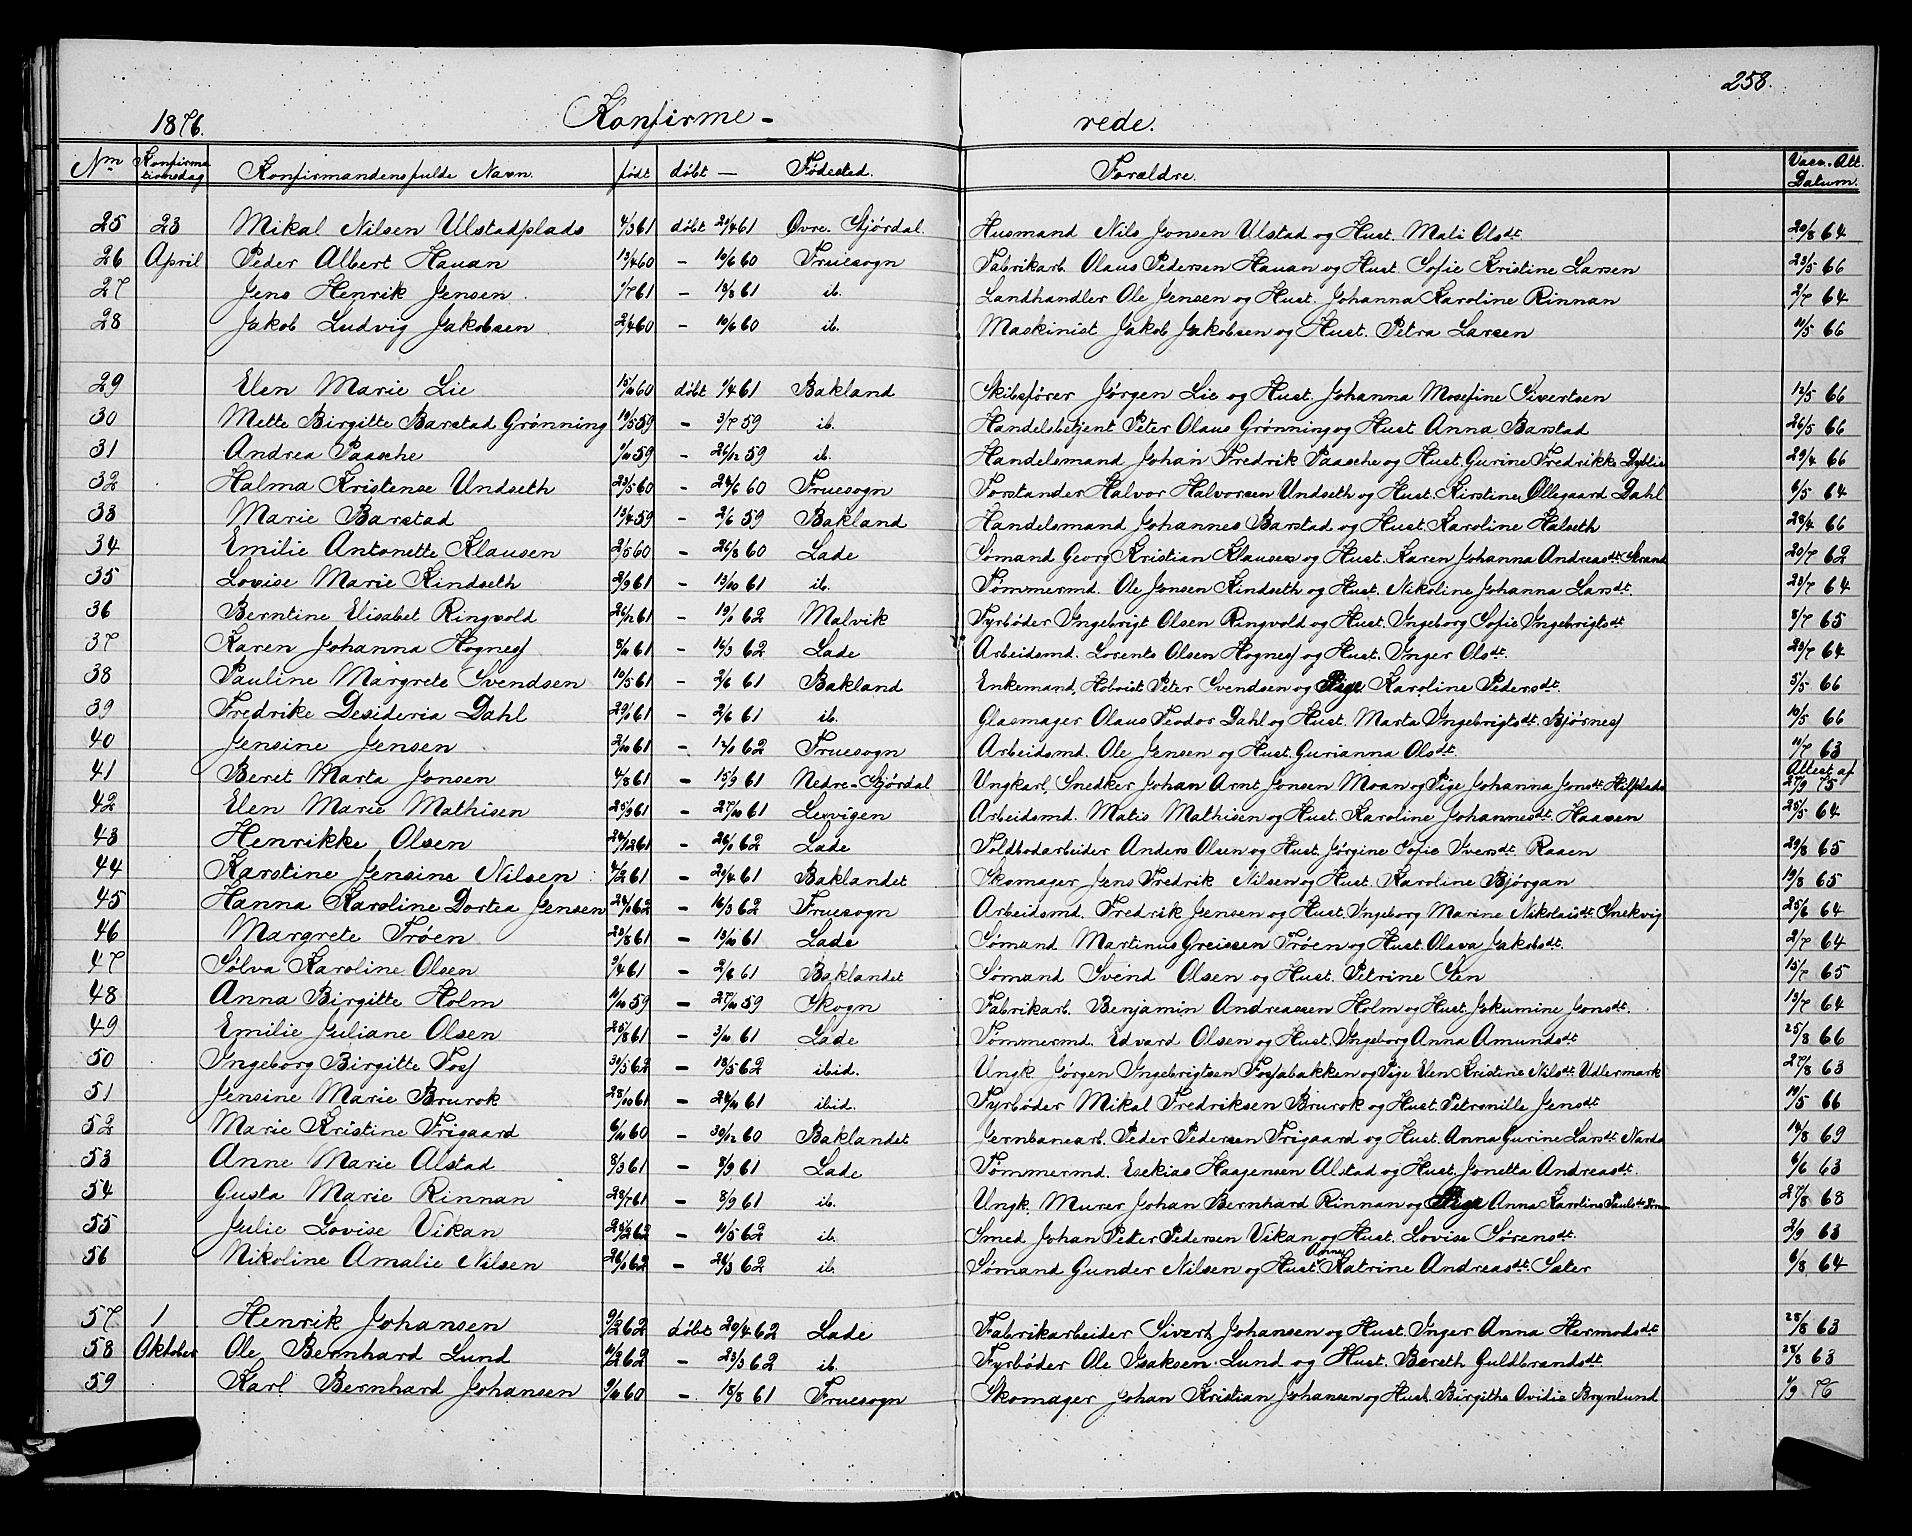 258.
1876. Konfirme- rede.
Nm Konfirma tionsdag Konfirmandens fulde Navn. født døbt — Fødested. Forældre. Vacc. Att. Datum.
25 23 Mikal Nilsen Ulstadplads 4/3 61 døbt 21/4 61 Øvre. Stjørdal. Husmand Nils Jonsen Ulstad og Hust. Mali Olsdt 20/8 64
26 April Peder Albert Hauan 13/4 60 — 10/6 60 Fruesogn Fabrikarb. Olaus Pedersen Hauan og Hust. Sofie Kristine Larsen 23/5 66
27 Jens Henrik Jensen 1/7 61 — 18/8 61 ib. Landhandler Ole Jensen og Hust. Johanna Karoline Rinnan 2/7 64
28 Jakob Ludvig Jakobsen 2/4 60 — 10/6 60 ib. Maskinist Jakob Jakobsen og Hust. Petra Larsen 11/5 66
29 Elen Marie Lie 15/10 60 døbt 1/4 61 Bakland Skibsfører Jørgen Lie og Hust. Johanna Mosefine Sivertsen 12/5 66
30 Mette Birgitte Barstad Grønning 19/5 59 — 3/7 59 ib. Handelsbetjent Peter Olaus Grønning og Hust Anna Barstad 26/5 66
31 Andrea Paasche 1/10 59 — 26/12 59 ib. Handelsmand Johan Fredrik Paasche og Hust. Gurine Fredrikke Dyblie 29/4 66
32 Halma Kristense Undseth 23/5 60 — 24/6 60 Fruesogn Forstander Halvor Halvorsen Undseth og Hust. Kirstine Ollegaard Dahl 6/5 64
33 Marie Barstad 13/4 59 — 2/6 59 Bakland Handelsmand Johannes Barstad og Hust. Karoline Halseth 28/4 66
34 Emilie Antonette Klausen 2/5 60 — 26/8 60 Lade Sømand Georg Kristian Klausen og Hust. Karen Johanna Andreasdt. Strand 20/7 62
35 Lovise Marie Kindseth 2/9 61 — 13/10 61 ib. Tømmermd. Ole Jonsen Kindseth og Hust. Nikoline Johanna Larsdt. 23/7 64
36 Berntine Elisabet Ringvold 26/12 61 — 19/1 62 Malvik Fyrbøder Ingebrigt Olsen Ringvold og Hust. Ingeborg Sofie Ingebrigtsdt 8/7 65
37 Karen Johanna Hognes 8/11 61 — 16/3 62 Lade Arbeidsmd. Lorents Olsen Hognes og Hust. Inger Olsdt. 23/7 64
38 Pauline Margrete Svendsen 10/5 61 — 2/6 61 Bakland Enkemand, Hoboist Peter Svendsen og Pige Karoline Pedersdt. 5/5 66
39 Fredrike Desideria Dahl 29/1 61 — 2/6 61 ib. Glasmager Olaus Teodor Dahl og Hust. Marta Ingebrigtsdt. Bjørnes 10/5 66
40 Jensine Jensen 2/10 61 — 12/1 62 Fruesogn Arbeidsmd. Ole Jensen og Hust. Gurianna Olsdt. 11/7 63
41 Beret Marta Jonsen 4/8 61 — 15/9 61 Nedre-Stjørdal Ungkarl, Snedker Johan Arnt Jonsen Moan og Pige Johanna Jonsdt. Hilfplads Attest af 27/9 75
42 Elen Marie Mathisen 25/9 61 — 27/10 61 Levigen Arbeidsmd. Matis Mathisen og Hust. Karoline Johannesdt. Haasen 25/5 64
43 Henrikke Olsen 24/12 61 — 26/1 62 Lade Toldbodarbeider Anders Olsen og Hust. Jørgine Sofie Iversdt. Raaen 29/8 65
44 Karstine Jensine Nilsen 4/2 61 — 21/4 61 Baklandet Skomager Jens Fredrik Nilsen og Hust. Karoline Bjørgan 19/8 65
45 Hanna Karoline Dortea Jensen 24/1 62 — 16/3 62 Fruesogn Arbeidsmd. Fredrik Jensen og Hust. Ingeborg Marine Nikolaisdt. Snekvig 25/6 64
46 Margrete Trøen 23/8 61 — 13/10 61 Lade Sømand Martinus Greissen Trøen og Hust. Olava Jakobsdt. 2/7 64
47 Sølva Karoline Olsen 9/4 61 — 2/6 61 Baklandet Sømand Svend Olsen og Hust. Petrine Sten 15/7 65
48 Anna Birgitte Holm 11/10 59 — 27/10 59 Skogn Fabrikarb. Benjamin Andreassen Holm og Hust. Jekumine Jonsdt. 13/7 64
49 Emilie Juliane Olsen 25/8 61 — 3/10 61 Lade Tømmermd. Edvard Olsen og Hust. Ingeborg Anna Amundsdt 25/8 66
50 Ingeborg Birgitte Fos 30/5 62 — 18/5 62 ibid. Ungk. Jørgen Ingebrigtsen Fossbakken og Pige Elen Kristine Nilsdt. Udlermark 27/8 63
51 Jensine Marie Brurok 28/10 61 — 24/11 61 ibid. Fyrbøder Mikal Fredriksen Brurok og Hust. Petronille Jensdt 19/5 66
52 Marie Kristine Frigaard 6/11 60 — 30/12 60 Baklandet Jernbanearb. Peder Pedersen Frigaard og Hust. Anna Gurine Larsdt. Nardo 14/8 69
53 Anne Marie Alstad 8/3 61 — 8/9 61 Lade Tømmermd. Esekias Haagensen Alstad og Hust. Jonetta Andreasdt. 6/6 63
54 Gusta Marie Rinnan 28/7 61 — 8/9 61 ib. Ungk. Murer Johan Bernhard Rinnan og Pige Anna Karoline Paulsdt. 27/8 68
55 Julie Lovise Vikan 25/2 62 — 11/5 62 ib. Smed Johan Peter Pedersen Vikan og Hust. Lovise Sørensdt. 2/9 63
56 Nikoline Amalie Nilsen 26/1 62 — 26/3 62 ib. Sømand Gunder Nilsen og Hust. Anne Katrine Andreasdt. Sæter 6/8 64
57 1 Henrik Johansen 9/2 62 døbt 20/4 62 Lade Fabrikarbeider Sivert Johansen og Hust. Inger Anna Hermodsdt 28/8 63
58 Oktober Ole Bernhard Lund 11/2 62 — 23/3 62 ib. Fyrbøder Ole Isaksen Lund og Hust. Bereth Guldbrandsdt. 28/8 63
59 Karl Bernhard Johansen 9/11 60 — 18/8 61 Fruesogn Skomager Johan Kristian Johansen og Hust. Birgithe Ovidie Brynlund 1/9 76